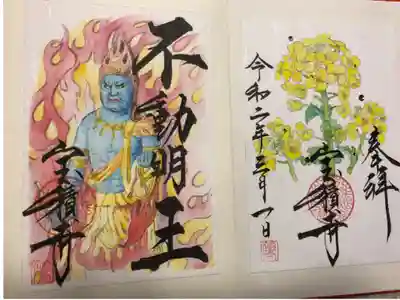 奉拝
宝積寺
令和二年三月一日
不動明王
宝積寺